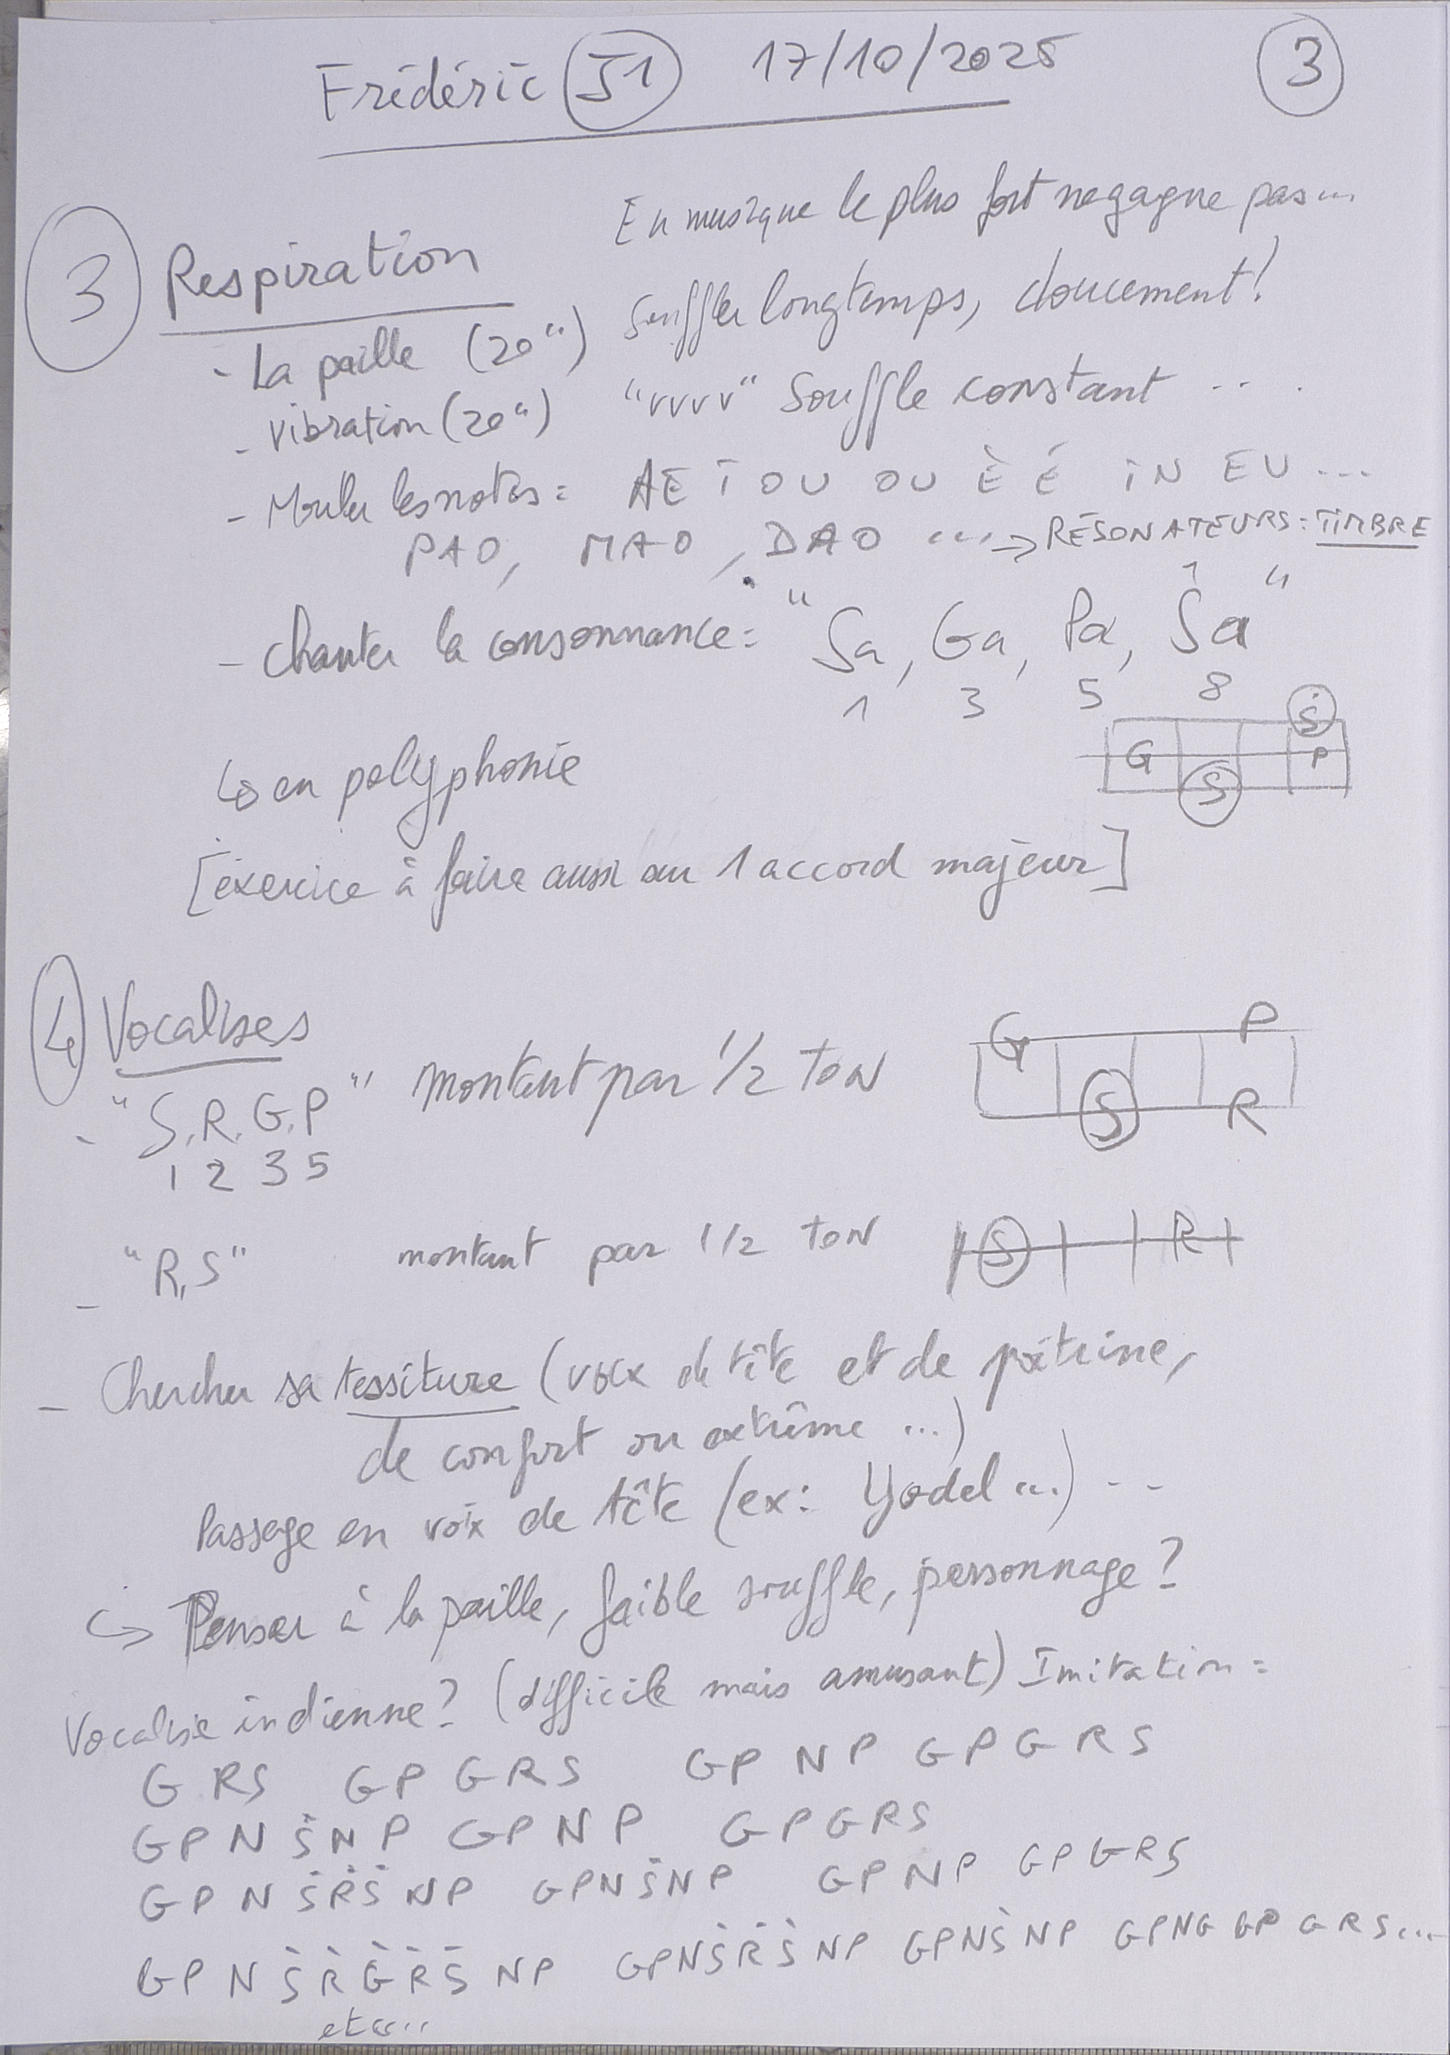 Frédéric J1 17/10/2025 3
En musique le plus fort ne gagne pas...
3 Respiration
- La paille (20") Souffler longtemps, doucement!
- Vibration (20") "vvvv" Souffle constant ...
- Mouler les notes: A E I O U OU È É IN EU ...
PAO, MAO, DAO ... → RÉSONATEURS: TIMBRE
- Chanter la consonnance: "Sa, Ga, Pa, Ṡa"
1 3 5 8
Ṡ
G P
S
↳ en polyphonie
[exercice à faire aussi sur 1 accord majeur]
4 Vocalises
G P
- "S, R, G, P" montant par 1/2 TON
S R
1 2 3 5
- "R, S" montant par 1/2 TON S R
- Chercher sa tessiture (voix de tête et de poitrine,
de confort ou extrême ...)
Passage en voix de tête (ex: Yodel ...) ...
↪ Penser à la paille, faible souffle, personnage?
Vocalise indienne? (difficile mais amusant) Imitation =
G R S G P G R S G P N P G P G R S
G P N Ṡ N P G P N P G P G R S
G P N Ṡ Ṙ Ṡ N P G P N Ṡ N P G P N P G P G R S
G P N Ṡ Ṙ Ġ Ṙ Ṡ N P G P N Ṡ Ṙ Ṡ N P G P N Ṡ N P G P N G G P G R S...
etc...